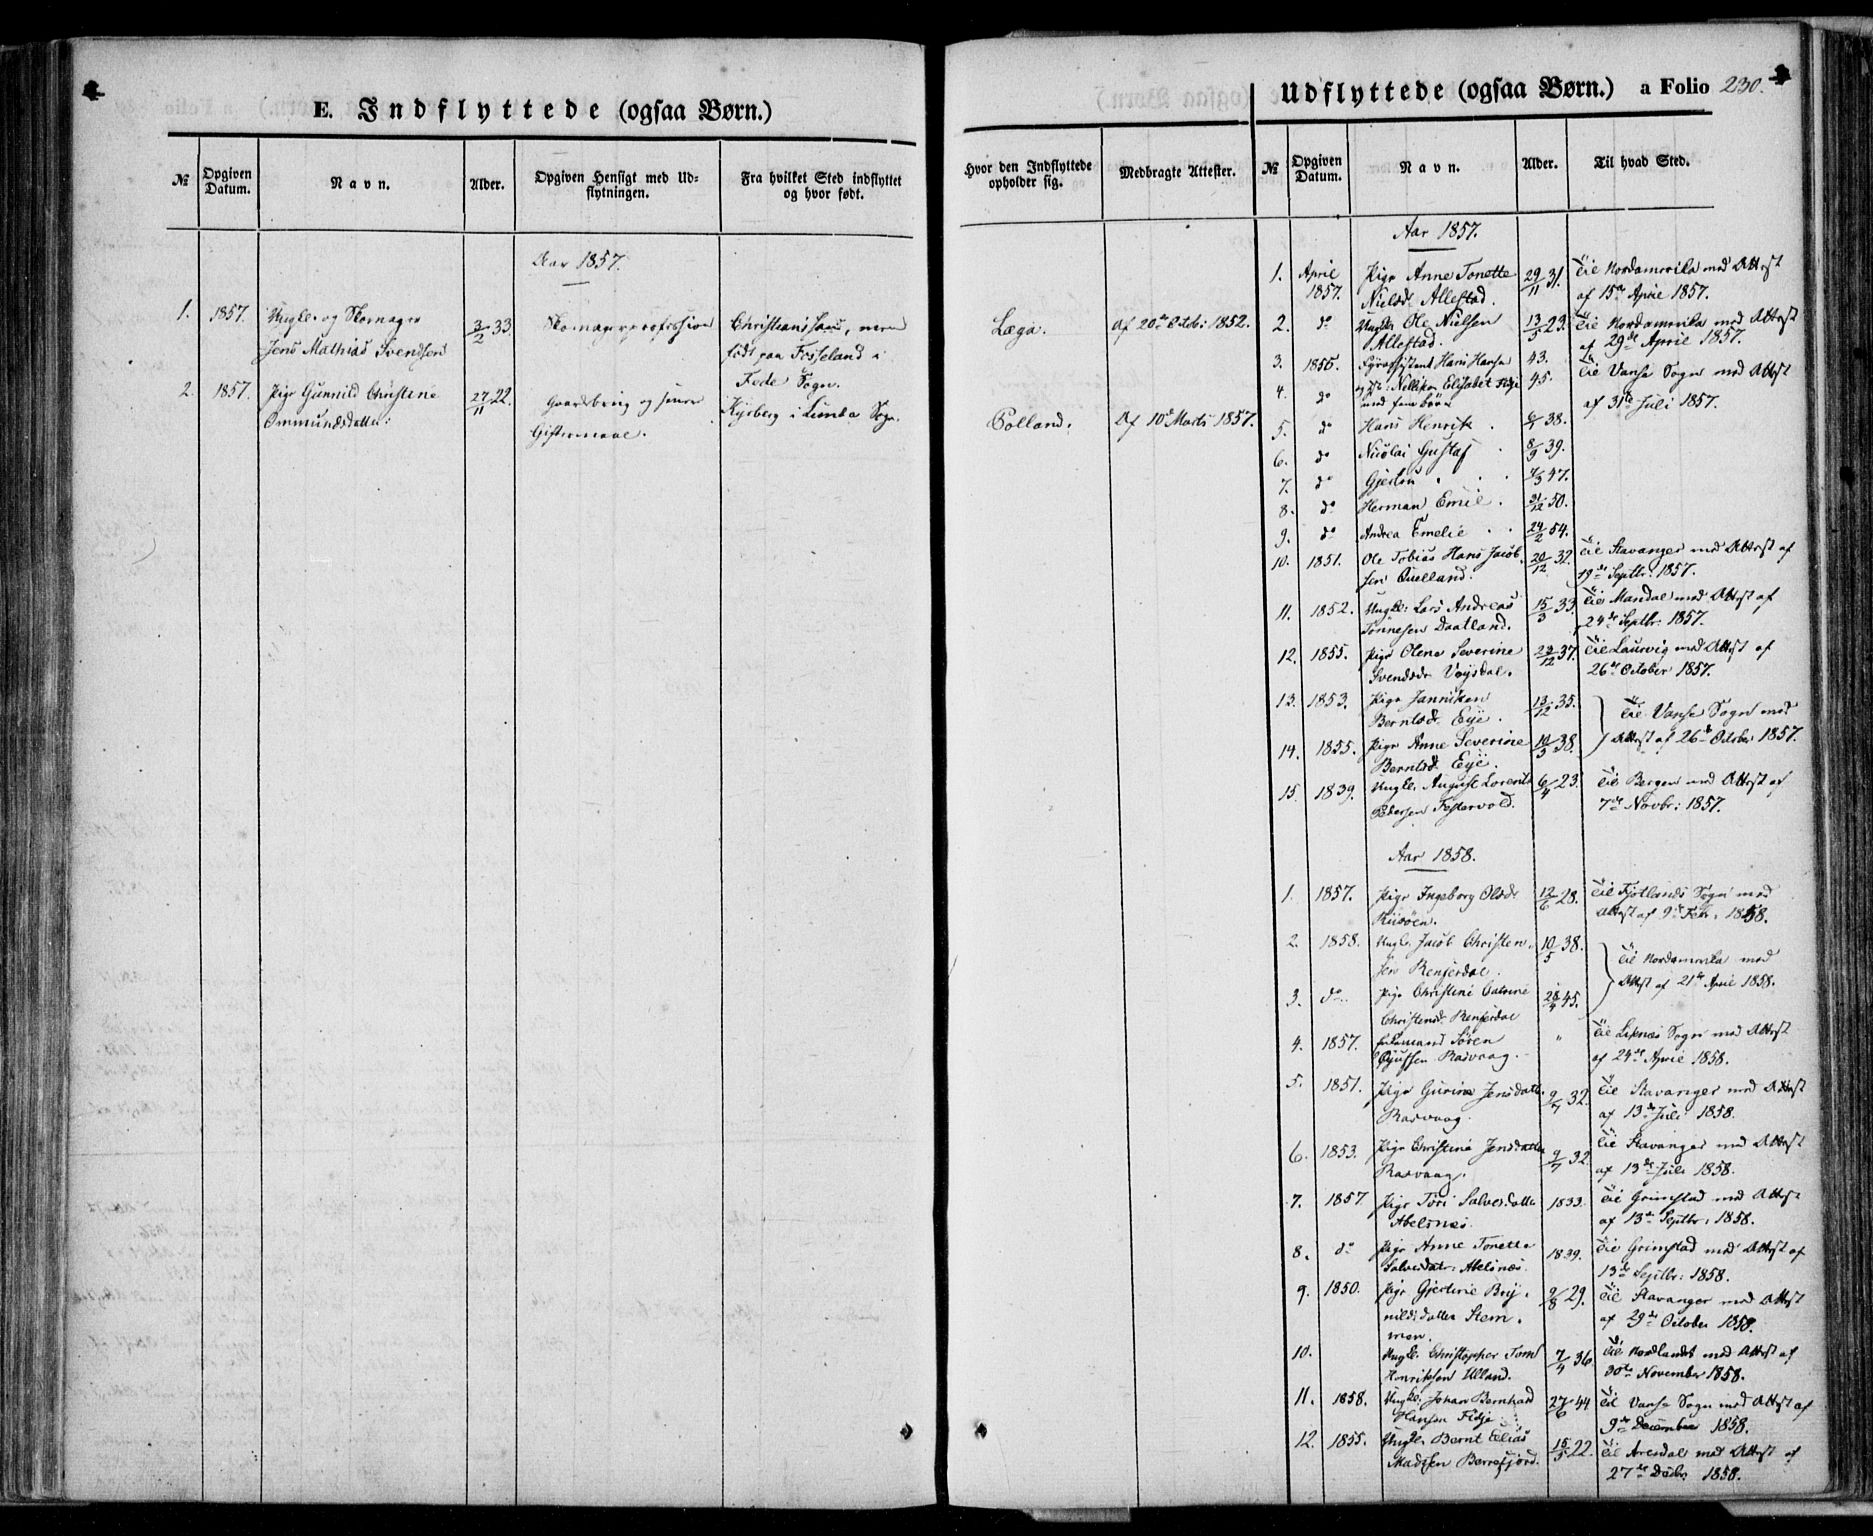 E. Indflyttede (ogsaa Børn.)
№ Opgiven Datum. Navn. Alder. Opgiven Hensigt med Udflytningen. Fra hvilket Sted indflyttet og hvor født.
Aar 1857.
1. 1857. Ungk. og Skomager 3/2 33 Skomagerprofession Christianssand, men
Jens Mathias Svendsen født paa Fosseland i
Fede Sogn.
2. 1857. Pige Gunnild Christine 27/11 22. Gaardsbrug og
Ommundsdatter Giftermaal. i Sogn.
Hvor den Indflyttede opholder sig. Medbragte Attester.
Læga. Af 20de Octob: 1852.
Polland. Af 10de Marts 1857.
Udflyttede (ogsaa Børn.) a Folio 230.
№ Opgiven Datum. Navn. Alder. Til hvad Sted.
Aar 1857.
1. April Pige Anne Tonette 29/11 31. Til Nordamerika med Attest
1857. Nielsd. Allestad. af 15de April 1857.
2. do Ungk. Ole Nielsen 13/5 23. Til Nordamerika med Attest
Allestad. af 29de April 1857.
3. 1856. Hans Hansen 43. Til Vanse Sogn med Attest
4. do Elisabet Fidje 45. af 31te Juli 1857.
med fem børn
5. do Hans Henrik 38.
6. do Nicolai Gustaf 8/9 39.
7. do 7/3 47.
8. do Herman Emil. 31/12 50.
9. do Andrea Emelie 24/2 54.
10. 1851. Ole Tobias Hans Jacob- 20/12 32. Til Stavanger med Attest af
sen Qvelland. 19de Septbr: 1857.
11. 1852. Ungk. Lars Andreas 15/3 33. Til Mandal med Attest af
Tønnesen Daatland. 24de Septbr: 1857.
12. 1855. Pige Olene Severine 23/12 37. Til Laurvig med Attest af
Svendsdr 26de October 1857.
13. 1853. Pige Janniken 13/12 35. Til Vanse Sogn med
Berntsd. Eye.
14. 1855. Pige Anne Severine 10/3 38. Attest af 26de October 1857.
Berntsd. Eye.
15. 1839. Ungk. August Lorents 6/4 23. Til Bergen med Attest af
Pedersen Festervold. 7de Novbr: 1857.
Aar 1858.
1. 1857. Pige Ingeborg Olsdr 12/6 28. Til Fjotlands Sogn med
Attest af 9de Febr. 1858.
2. 1858. Ungk. Jacob Christen- 10/5 38. Til Nordamerika med
sen Renferdal.
3. do Pige Christine Catrine 28/4 45. Attest af 21de April 1858.
Christensd. Renferdal
4. 1857. Søren " Til Liknes Sogn med Attest
Rasvaag. af 24de April 1858.
5. 1851. Pige Gurine Jensdatter 9/7 32. Til Stavanger med Attest
Rasvaag. af 13de Juli 1858.
6. 1853. Pige Christine Jensdatter 9/7 32. Til Stavanger med Attest
Rasvaag. af 13de Juli 1858.
7. 1857 Pige Tøri Salvesdatter 1833. Til Grimstad med Attest
Abelsnes. af 13de Septbr: 1858.
8. do Pige Anne Tonette 1839. Til Grimstad med Attest af
Salvesdatr: Abelsnes. 13de Septbr: 1858.
9. 1850. Pige Gjertine Bry- 9/8 29. Til Stavanger med Attest
nildsdatter Stem- af 29de October 1858.
men.
10. Ungk. Christopher Tom 7/4 36 Til Nordlandet med Attest af
Henriksen Ulland. 30te November 1858.
11. 1858. Ungk. Johan Bernhard 27/6 44 Til Vanse Sogn med Attest af
Hansen Fidje. 9de December 1858.
12. 1855. Ungk. Bernt Elias 15/5 22. Til Arendal med Attest af
Madssen Berrefjord. 27de Decbr 1858.